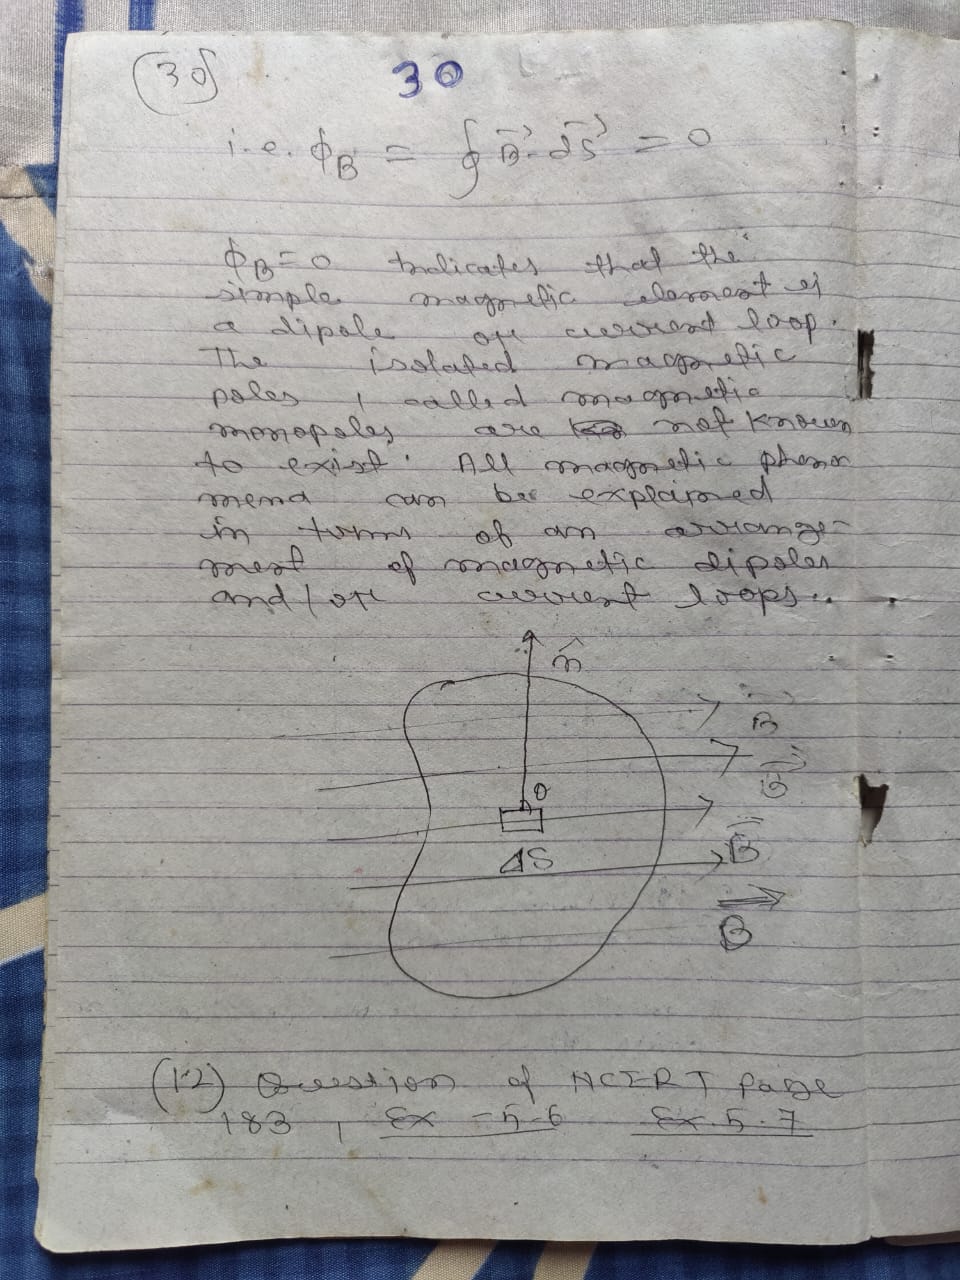 (30) 30
i.e. ϕB = ∮ B⃗.dS⃗ = 0
ϕB=0 Indicates that the
simple magnetic element of
a dipole or current loop.
The isolated magnetic
poles, called magnetic
monopoles are not known
to exist. All magnetic pheno
mena can be explained
in terms of an arrange-
ment of magnetic dipoles
and/or current loops..
n̂
B⃗
B⃗
θ
B⃗
ΔS
B⃗
(12) Question of NCERT page
183, Ex -5.6 Ex.5.7